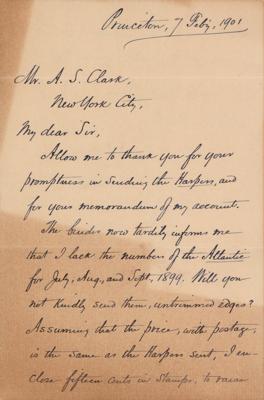 Princeton, 7 Feby, 1901
Mr. A. S. Clark,
New York City,
My dear Sir,
Allow me to thank you for your
promptness in sending the Harpers, and
for your memorandum of my account.
The binder now tardily informs me
that I lack the numbers of the Atlantic
for July, Aug, and Sept, 1899. Will you
not kindly send them, untrimmed edges?
Assuming that the price, with postage,
is the same as the Harpers sent, I en-
close fifteen cents in stamps, to